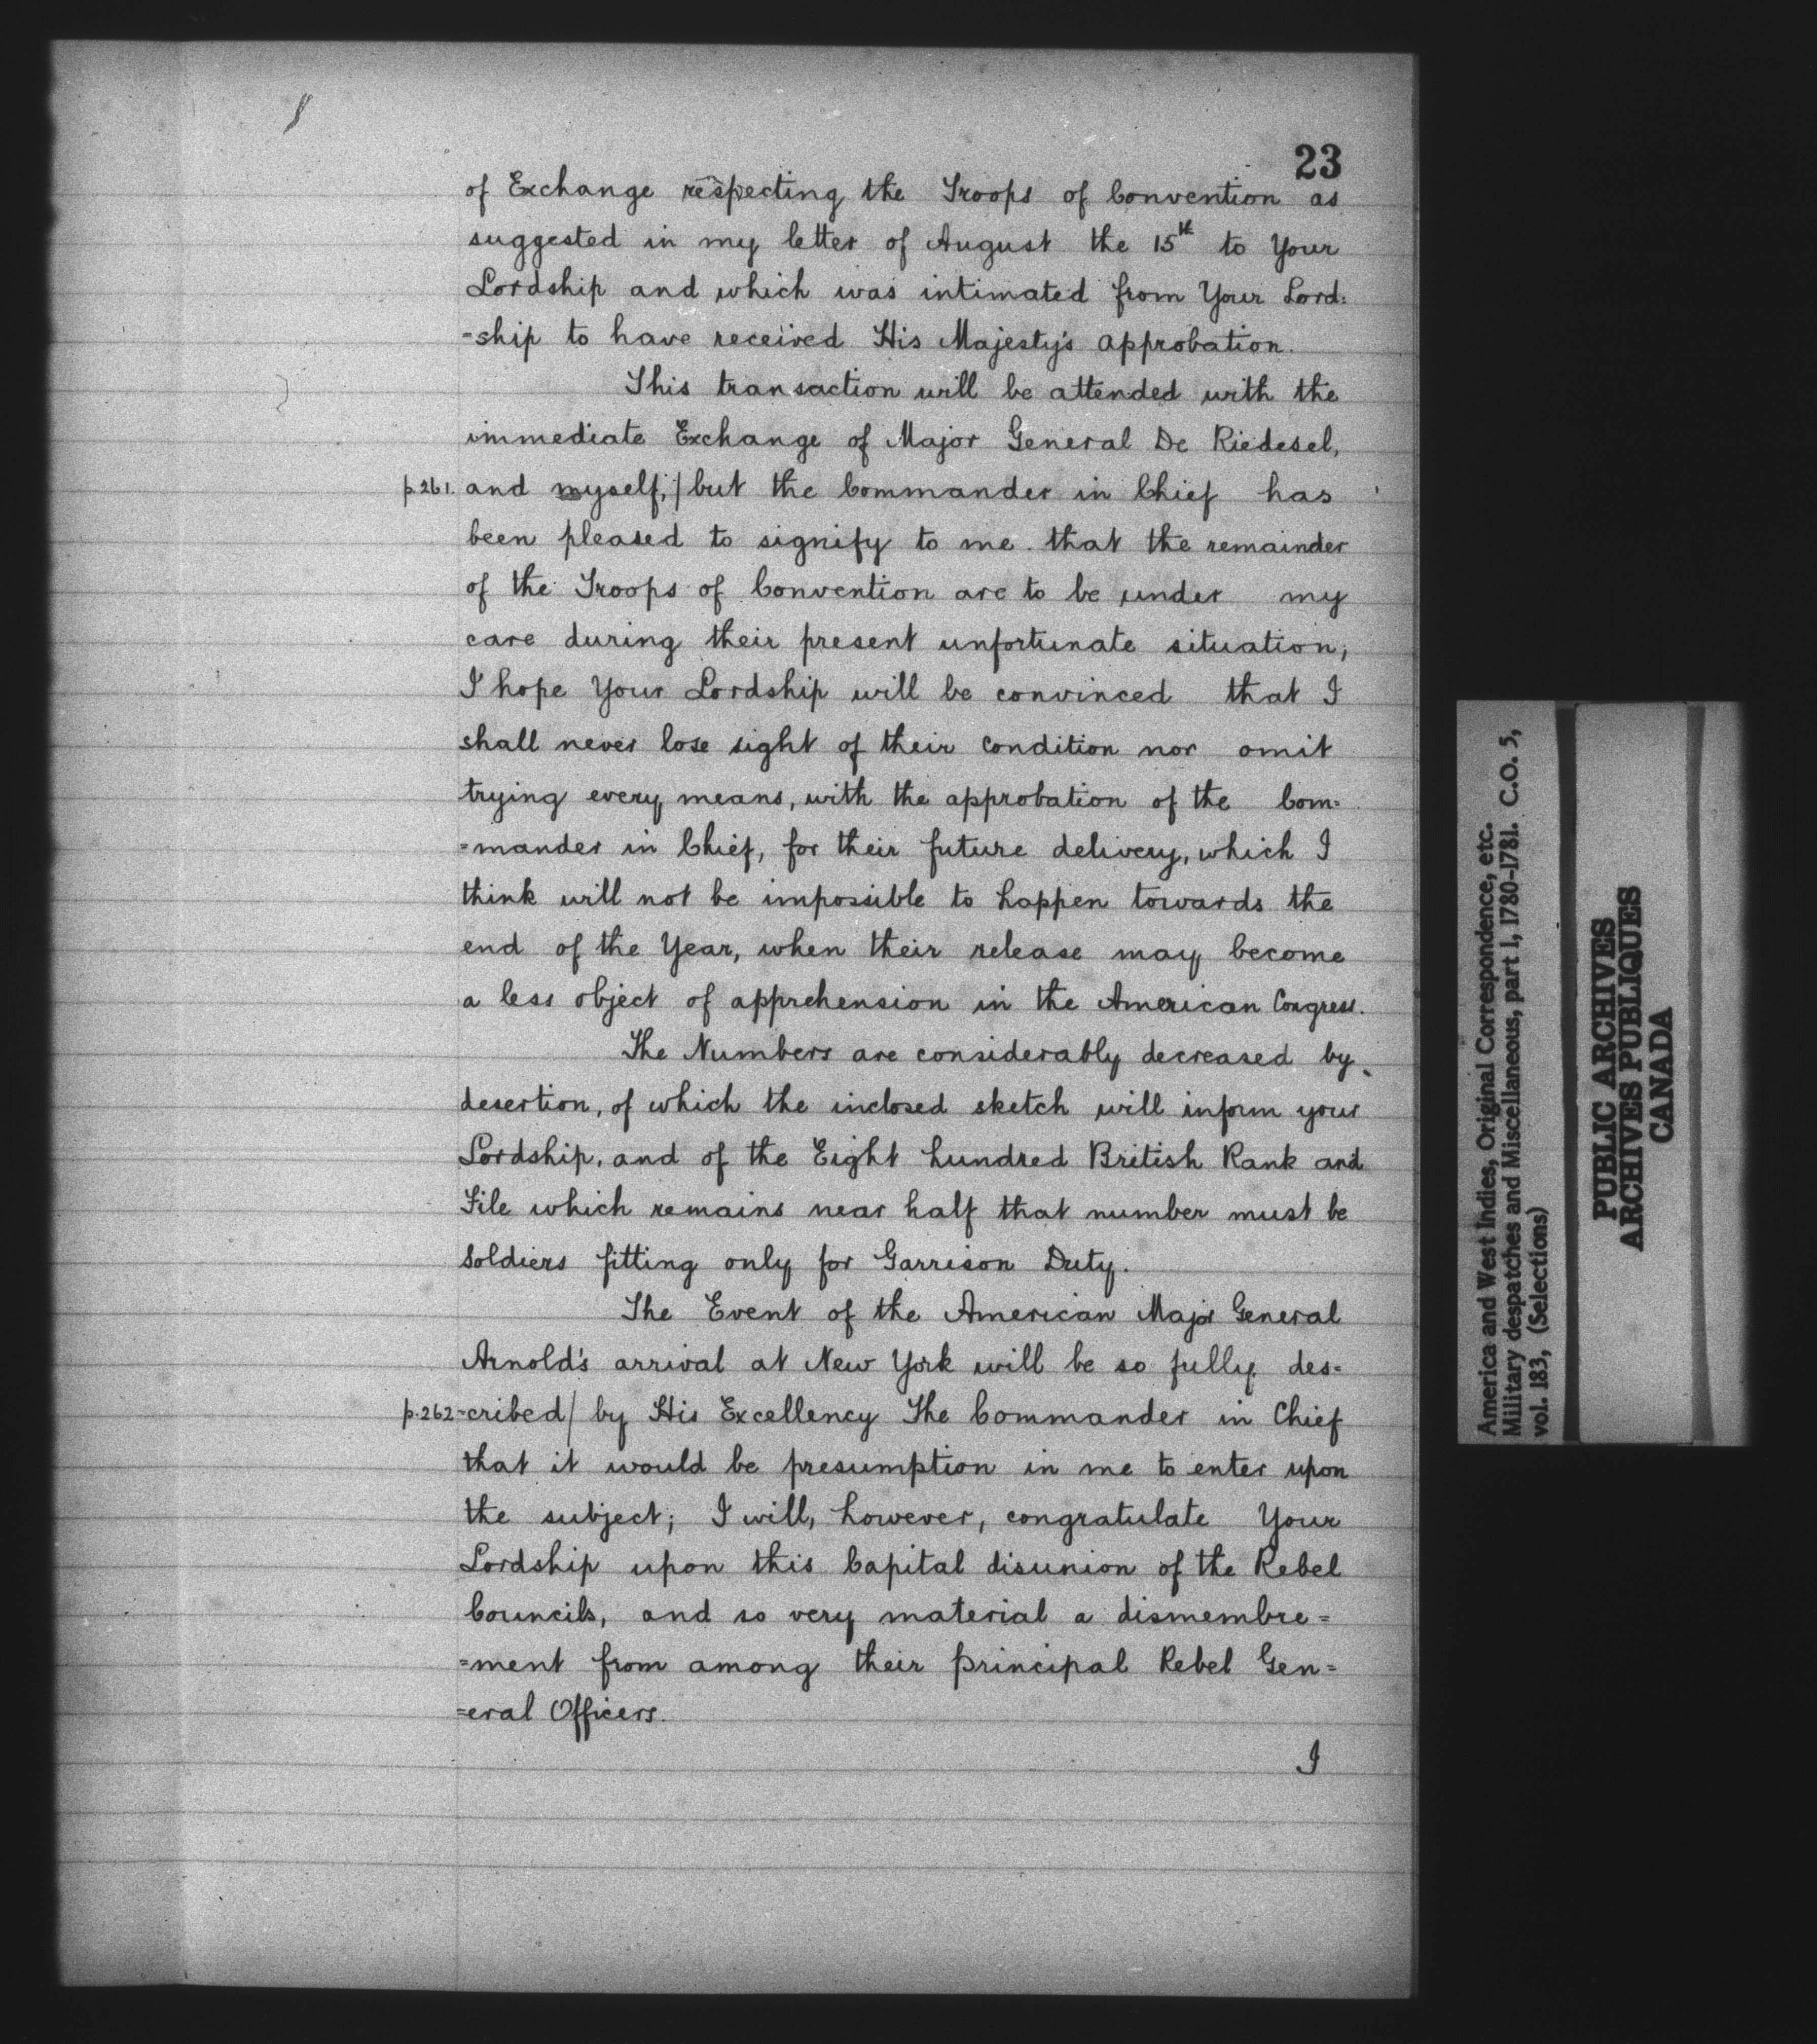 23
of Exchange respecting the Troops of Convention as
suggested in my letter of August the 15th to Your
Lordship and which was intimated from Your Lord:
-ship to have received His Majesty's approbation.
This transaction will be attended with the
immediate Exchange of Major General De Riedesel,
p.261. and myself,/ but the Commander in Chief has
been pleased to signify to me that the remainder
of the Troops of Convention are to be under my
care during their present unfortunate situation;
I hope Your Lordship will be convinced that I
shall never lose sight of their condition nor omit
trying every means, with the approbation of the Com=
=mander in Chief, for their future delivery, which I
think will not be impossible to happen towards the
end of the Year, when their release may become
a less object of apprehension in the American Congress.
The Numbers are considerably decreased by
desertion, of which the inclosed sketch will inform your
Lordship, and of the Eight hundred British Rank and
File which remains near half that number must be
Soldiers fitting only for Garrison Duty.
The Event of the American Major General
Arnold's arrival at New York will be so fully des=
p.262 =cribed/ by His Excellency The Commander in Chief
that it would be presumption in me to enter upon
the subject; I will, however, congratulate Your
Lordship upon this Capital disunion of the Rebel
Councils, and so very material a dismembre=
=ment from among their principal Rebel Gen=
=eral Officers.
I
America and West Indies, Original Correspondence, etc.
Military despatches and Miscellaneous, part 1, 1780-1781. C.O. 5,
vol. 183, (Selections)
PUBLIC ARCHIVES
ARCHIVES PUBLIQUES
CANADA